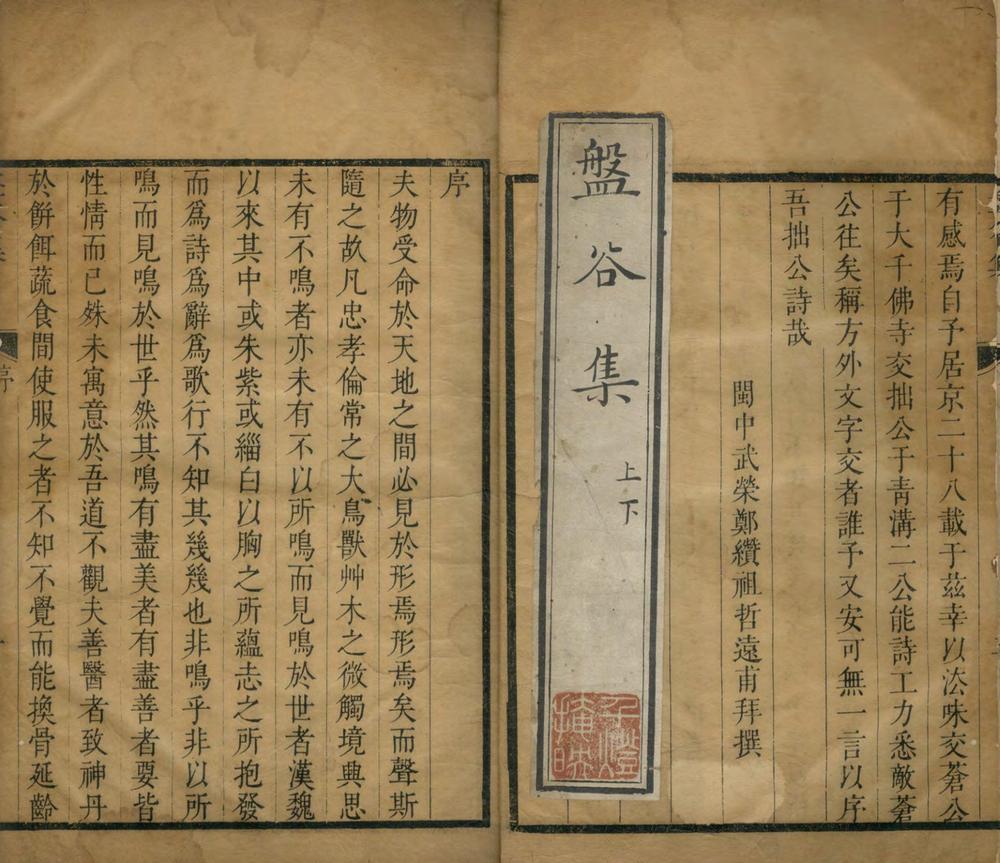 有感焉自予居京二十八載于茲幸以法味交蒼公
于大千佛寺交拙公于青溝二公能詩工力悉敵蒼
公往矣稱方外文字交者誰予又安可無一言以序
吾拙公詩哉
閩中武榮鄭纘祖哲遠甫拜撰
盤谷集
上下
序
夫物受命於天地之間必見於形焉形焉矣而聲斯
隨之故凡忠孝倫常之大鳥獸艸木之微觸境興思
未有不鳴者亦未有不以所鳴而見鳴於世者漢魏
以來其中或朱紫或緇白以胸之所蘊志之所抱發
而爲詩爲辭爲歌行不知其幾幾也非鳴乎非以所
鳴而見鳴於世乎然其鳴有盡美者有盡善者要皆
性情而已殊未寓意於吾道不觀夫善醫者致神丹
於餅餌蔬食間使服之者不知不覺而能換骨延齡
序